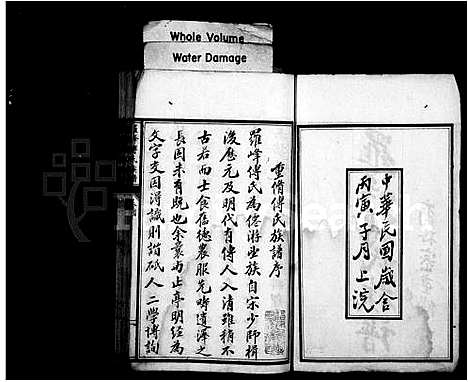 Whole Volume
Water Damage
中華民國歲舍
丙寅子月上浣
重脩傅氏族譜序
羅峰傅氏為仙游望族自宗少師楫
後歷元及明代有傳人入清雖稍不
古若而士食舊德農服先疇遺澤之
長固未有既也余曩与止亭明經為
文字交因得識則諧砥人二學博詢